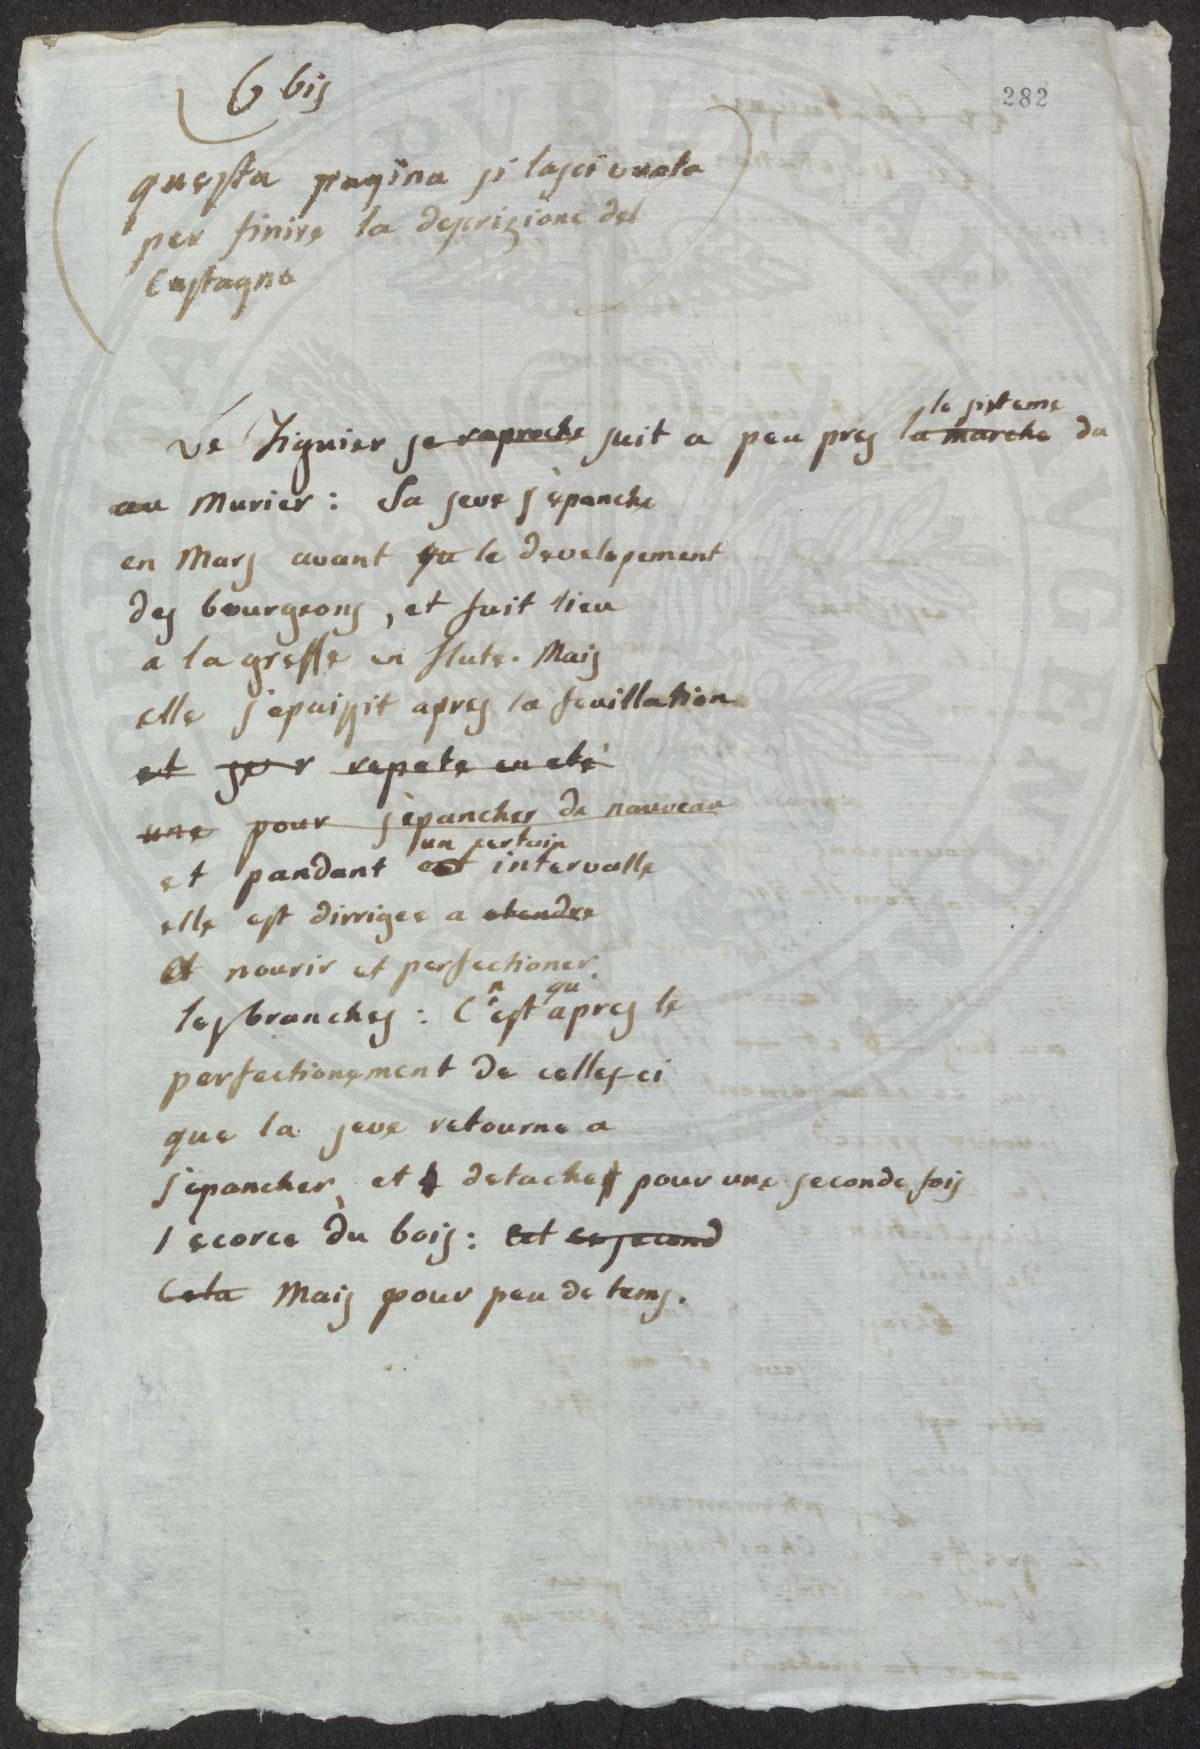 6 bis
282
questa pagina si lasci vuota
per finire la descrizione del
Castagno
le sisteme
Le Figuier se raproche suit a peu pres la marche du
au Murier : Sa seve s'épanche
en Mars avant qu le developement
des bourgeons, et fait lieu
a la greffe en flute. Mais
elle s'epaissit apres la feuillation
et repete en eté
une pour s'épancher de nouveau
un certain
et pandant intervalle
elle est dirrigee a etendre
et nourir et perfectioner
n qu
les branches : C'est apres le
perfectionement de celles-ci
que la seve retourne a
s'épancher, et detache pour une seconde fois
l'ecorce du bois : Cet ce second
Cela Mais pour peu de tems.